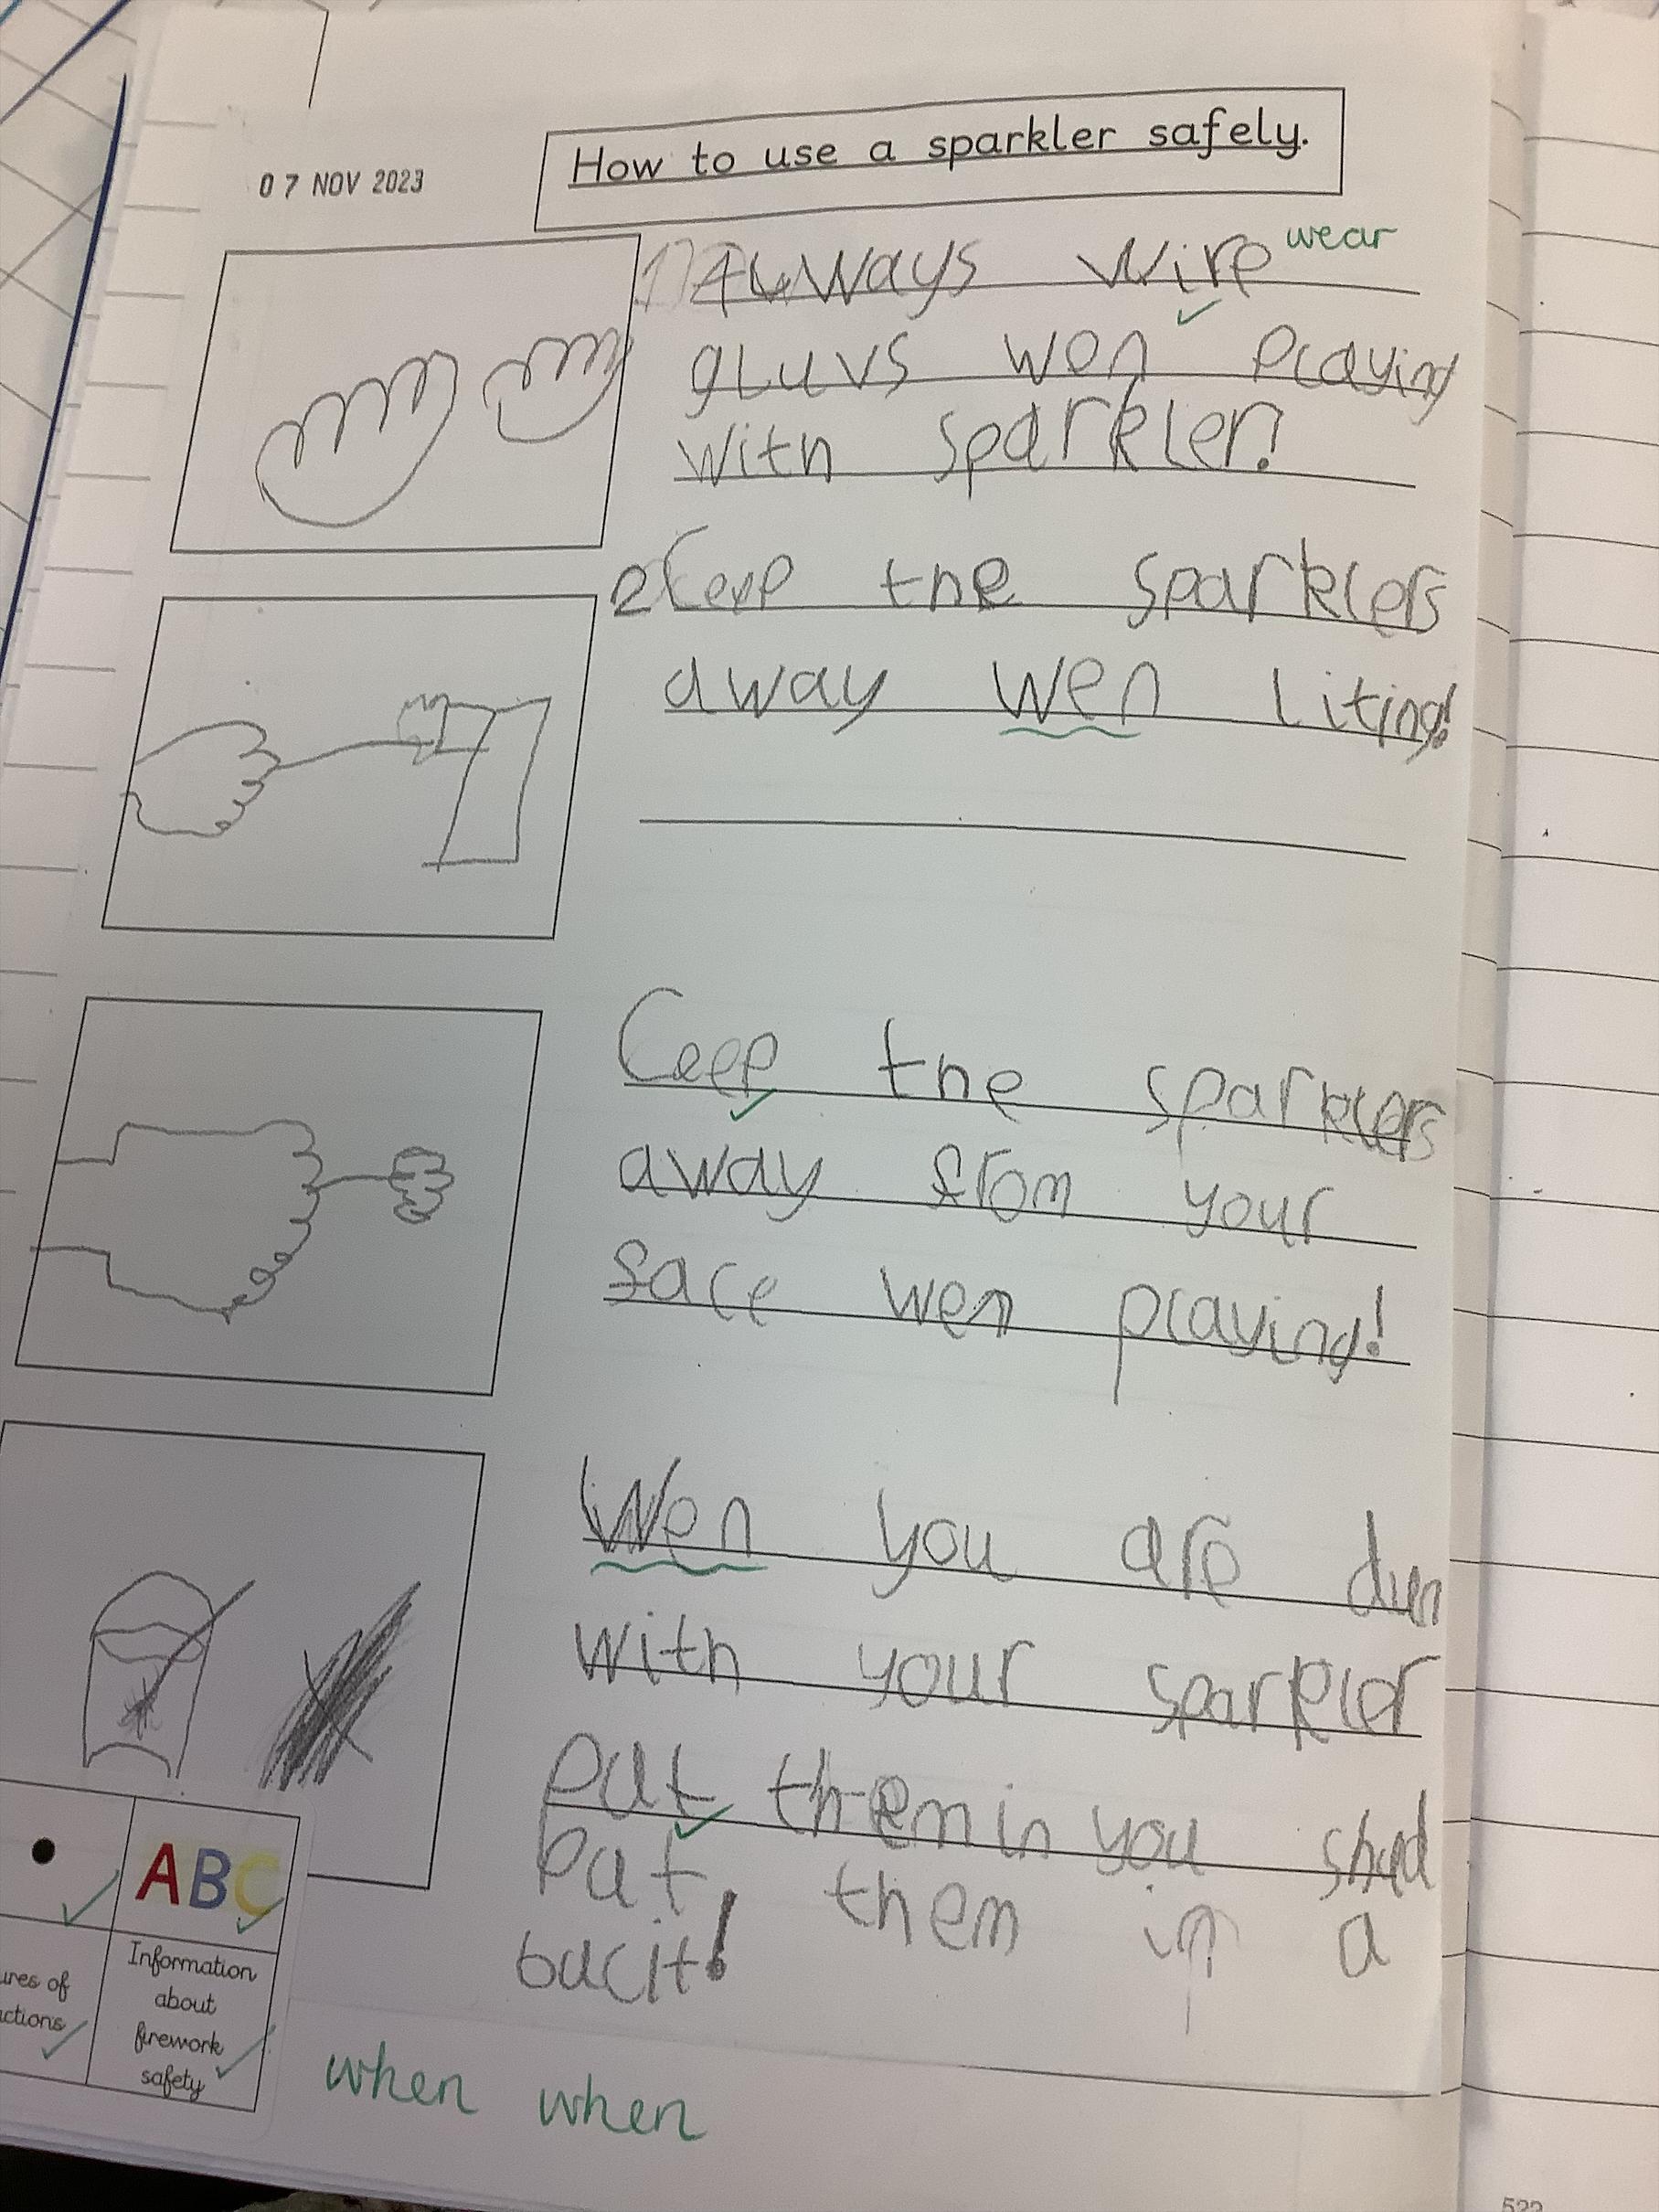 07 NOV 2023
How to use a sparkler safely.
1 Always wire wear
gluvs wen playing
with sparkler!
2 Ceep the sparklers
away wen liting!
Ceep the sparklers
away from your
face wen playing!
Wen you are dun
with your sparkler
put them in you shud
put them in a
bucit!
ABC
ures of
ctions
Information
about
firework
safety
when when
522